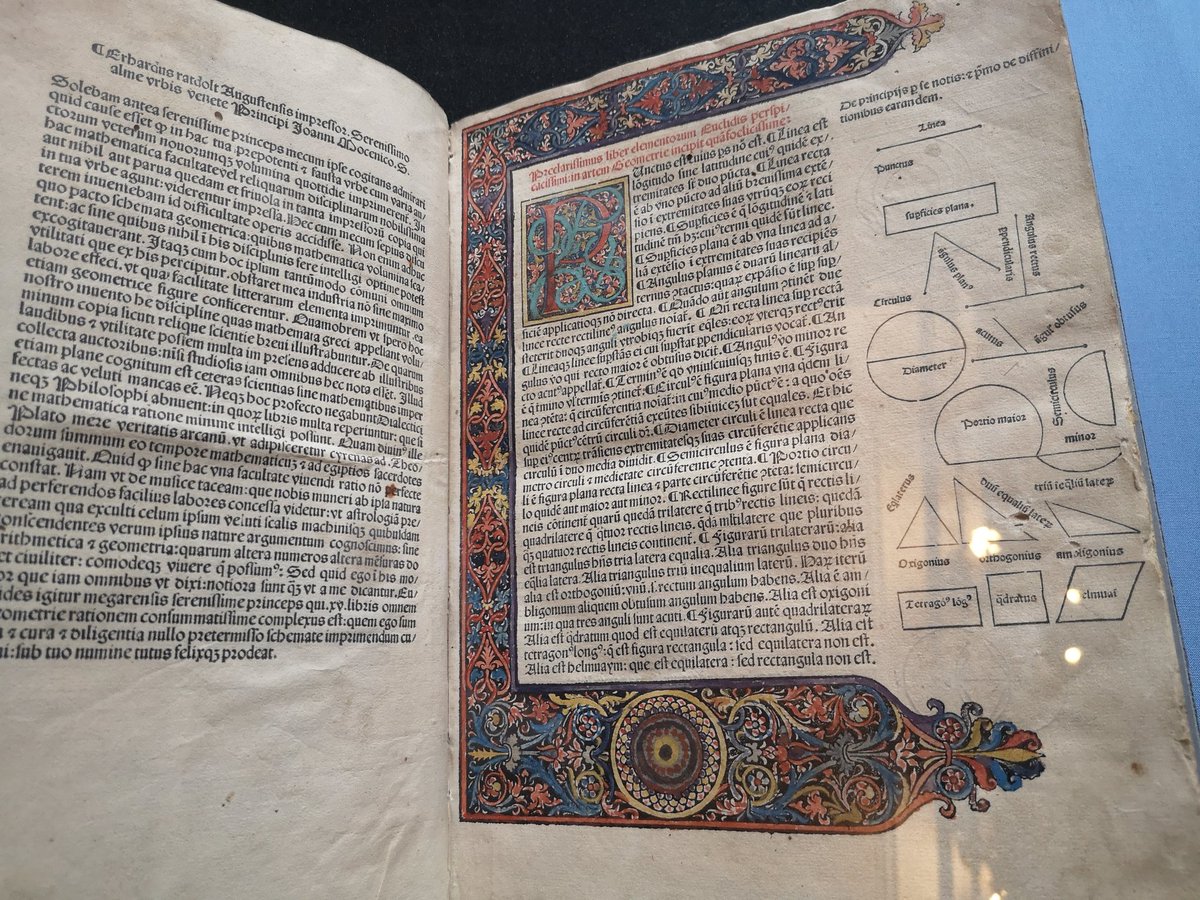 ⁋Erhardus ratdolt Augustensis impressor. Serenissimo
alme vrbis venete Principi Joanni Mocenico. S.
Solebam antea serenissime princeps mecum ipse cogitans admirari
quid cause esset ꝙ in hac tua prepotenti ⁊ fausta vrbe cum varia au/
ctorum veterum nouorumqꝫ volumina quottidie imprimerent̃. In
hac mathematica facultate vel reliquarum disciplinarum nobilissima
aut nihil aut parua quedam et friuola in tanta impressorũ copia qui
in tua vrbe agunt: viderentur impressa. Hec cum mecum sepius discu/
terem inueniebam id difficultate operis accidisse. Non enim adhuc
quo pacto schemata geometrica: quibus mathematica volumina sca/
tent: ac sine quibus nihil ĩ his disciplinis fere intelligi optime potest
excogitauerant. Itaqꝫ cum hoc ipsum tantũmodo cõmuni omnium
vtilitati que ex his percipitur, obstaret mea industria nõ sine maximo
labore effeci. vt qua facilitate litterarum elementa imprimuntur. ea
etiam geometrice figure conficerentur. Quamobrem vt spero hoc
nostro inuento he discipline quas mathemata greci appellant volu/
minum copia sicuti relique scientie breui illustrabuntur. De quarum
laudibus ⁊ vtilitate possem multa im presens adducere ab illustribus
collecta auctoribus: nisi studiosis iam omnibus hec nota essẽt. Illud
etiam plane cognitum est ceteras scientias sine mathematibus imper
fectas ac veluti mancas eẽ. Neqꝫ hoc profecto negabunt Dialectici
neqꝫ Philosophi abnuent: in quoꝝ libris multa reperiuntur: que si
ne mathematica ratione minime intelligi possunt. Quam diuinꝰ ille
Plato mere veritatis arcanũ. vt adipisceretur cyrenas ad Theo/
dorum summum eo tempore mathematicũ ⁊ ad egiptios sacerdotes
enauigauit. Quid ꝙ sine hac vna facultate viuendi ratio nõ perfecte
constat. Nam vt de musice taceam: que nobis muneri ab ipsa natura
ad perferendos facilius labores concessa videtur: vt astrologiã pre/
teream qua exculti celum ipsum veluti scalis machinisqꝫ quibusdam
conscendentes verum ipsius nature argumentum cognoscimus: sine
arithmetica ⁊ geometria: quarum altera numeros altera mẽsuras do
cet ciuiliter: comodeqꝫ viuere q̃ possumꝰ: Sed quid ego ĩ his mo/
ror que iam omnibus vt dixi: notiora sunt qꝫ vt a me dicantur. Eu/
clides igitur megarensis serenissime princeps qui. xv. libris omnem
geometrie rationem consummatissime complexus est: quem ego sum
ma ⁊ cura ⁊ diligentia nullo pretermisso schemate imprimendum cu/
raui: sub tuo numine tutus felixqꝫ prodeat.
Preclarissimus liber elementorum Euclidis perspi/
cacissimi: in artem Geometrie incipit quãfoelicissime:
PUnctus est cuius ps nõ est. ⁋Linea est
lõgitudo sine latitudine cuiꝰ quidẽ ex/
tremitates sĩ duo pũcta. ⁋Linea recta
ẽ ab vno pũcto ad aliũ breuissima extẽ/
sio ĩ extremitates suas vtrũqꝫ eoꝝ reci
piens. ⁋Supficies ẽ q̃ lõgitudinẽ ⁊ lati
tudinẽ tm̃ hꝫ: cuiꝰ termĩ quidẽ sũt linee.
⁋Supficies plana ẽ ab vna linea ad a/
liã extẽsio ĩ extremitates suas recipiẽs
⁋Angulus planus ẽ duarũ linearũ al/
ternus ꝯtactus: quaꝝ expãsio ẽ sup sup/
ficiẽ applicatioqꝫ nõ directa. ⁋Quãdo aut angulum ꝯtinet due
linee recte rectilineꝰ angulus noĩat̃. ⁋Qñ recta linea sup rectã
steterit duoqꝫ anguli vtrobiqꝫ fuerit eq̃les: eoꝝ vterqꝫ rectꝰ erit
⁋Lineaqꝫ linee supstãs ei cui supstat ppendicularis vocat̃. ⁋An
gulus vo qui recto maior ẽ obtusus dicit̃. ⁋Angulꝰ vo minor re
cto acutꝰ appellat̃. ⁋Terminꝰ ẽ qd vniuscuiusqꝫ finis ẽ. ⁋Figura
ẽ q̃ tmĩno vl termĩs ꝯtinet̃. ⁋Circulꝰ ẽ figura plana vna qdem li/
nea ꝯtẽta: q̃ circũferentia noĩat̃: in cuiꝰ medio pũctꝰ ẽ: a quo oẽs
linee recte ad circũferẽtiã exeũtes sibiinuicẽ sut equales. Et hic
quidẽ pũctꝰ cẽtrũ circuli dr̃. ⁋Diameter circuli ẽ linea recta que
sup eiꝰ centꝝ trãsiens extremitatesqꝫ suas circũferẽtie applicans
circulũ ĩ duo media diuidit. ⁋Semicirculus ẽ figura plana dia/
metro circuli ⁊ medietate circũferentie ꝯtenta. ⁋Portio circu/
li ẽ figura plana recta linea ⁊ parte circũferẽtie ꝯteta: semicircu/
lo quidẽ aut maior aut minor. ⁋Rectilinee figure sũt q̃ rectis li/
neis cõtinent̃ quarũ quedã trilatere q̃ tribꝰ rectis lineis: quedã
quadrilatere q̃ qtuor rectis lineis. qdã mĩtilatere que pluribus
qꝫ quatuor rectis lineis continent̃. ⁋Figurarũ trilaterarũ: alia
est triangulus hñs tria latera equalia. Alia triangulus duo hñs
eq̃lia latera. Alia triangulus triũ inequalium laterũ. Haꝝ iterũ
alia est orthogoniũ: vnũ. s. rectum angulum habens. Alia ẽ am/
bligonium aliquem obtusum angulum habens. Alia ẽ oxigoni
um: in qua tres anguli sunt acuti. ⁋Figurarũ autẽ quadrilateraꝝ
Alia est q̃dratum quod est equilaterũ atqꝫ rectangulũ. Alia est
tetragonꝰ longꝰ: q̃ est figura rectangula: sed equilatera non est.
Alia est helmuaym: que est equilatera: sed rectangula non est.
De principijs ꝑ se notis: ⁊ pͫmo de diffini/
tionibus earandem.
Linea
Punctus
supficies plana.
ãgulus planꝰ
ppẽdicularis
Angulus rectus
Circulus
acutus
ãgulꝰ obtusus
Diameter
Portio maior
Semicirculus
minor
Eqlaterus
duũ equaliũ laterꝝ
triũ ĩeq̃liũ laterꝝ
Oxigonius
orthogonius
ambligonius
Tetragõꝰ lõgꝰ
q̃dratus
helmuaĩ